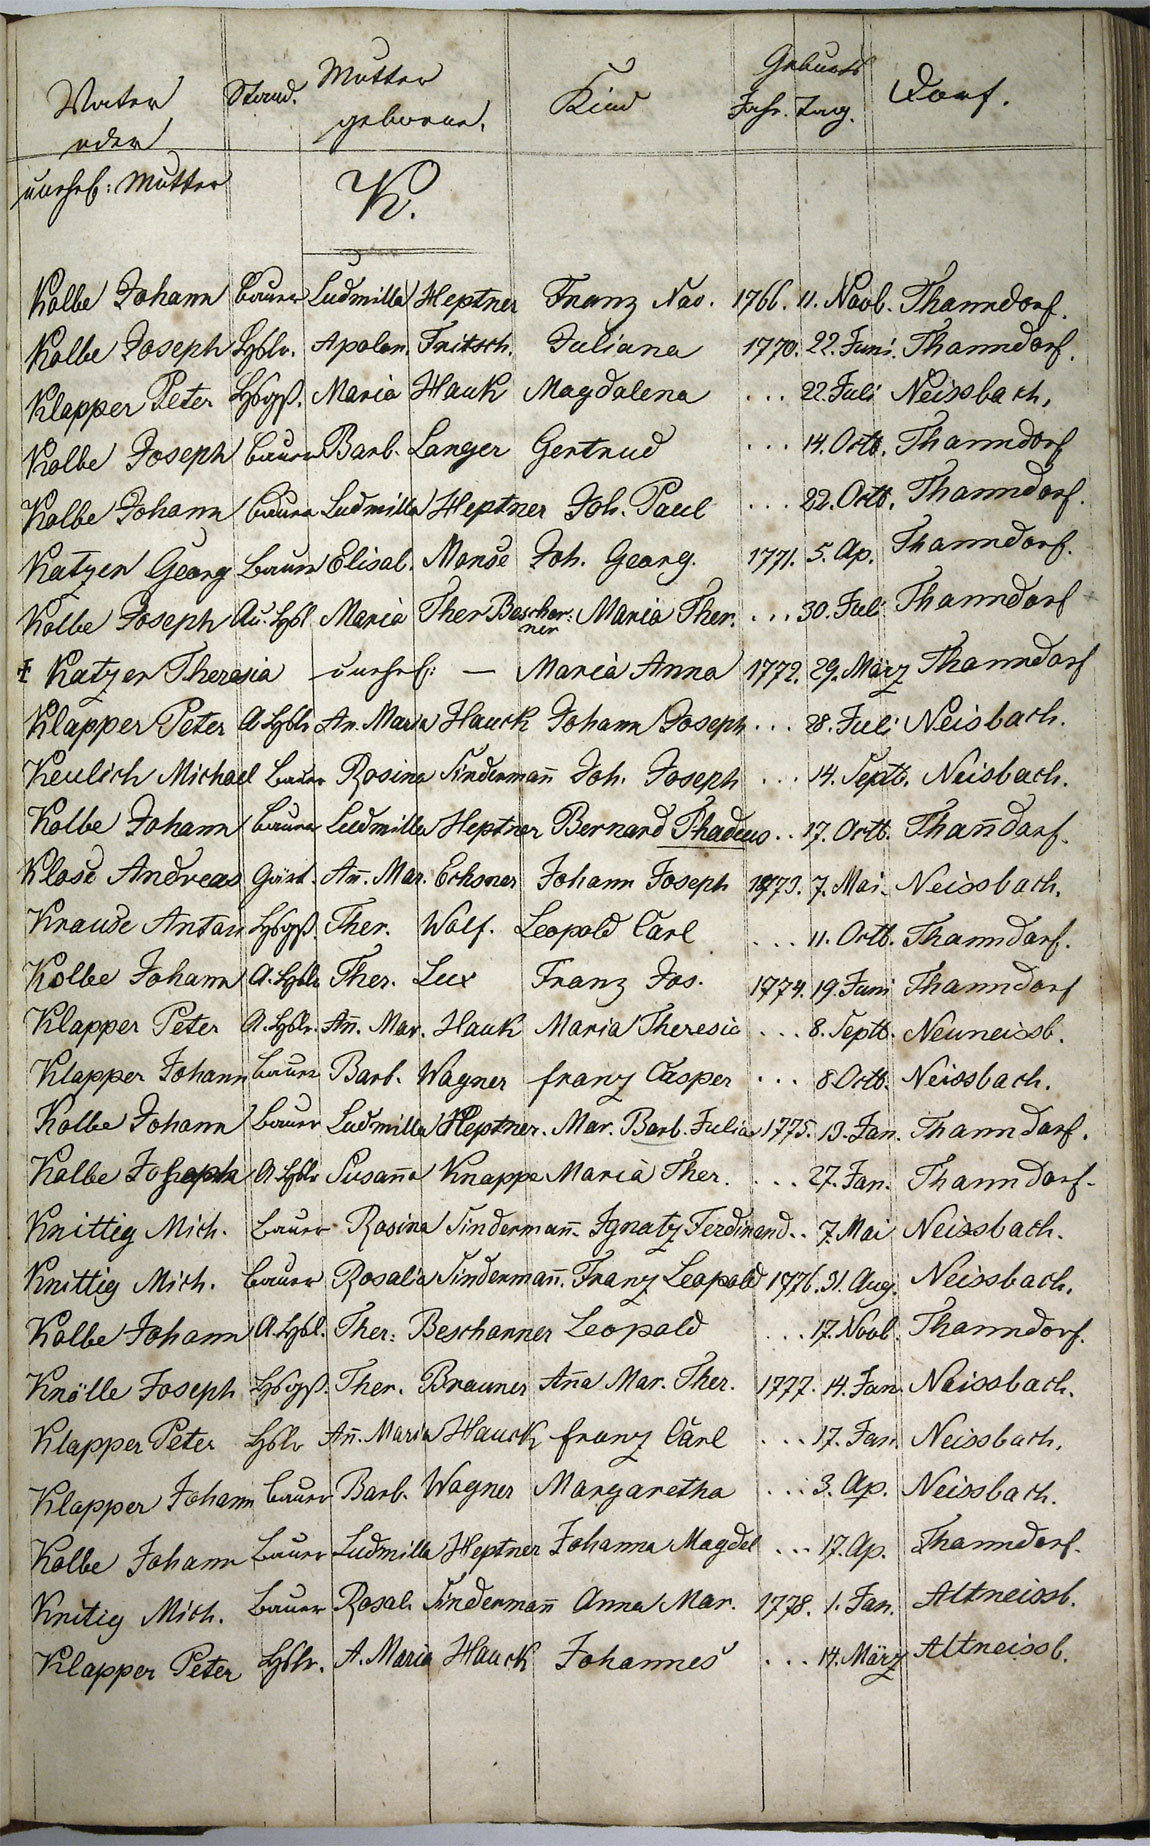 Vater oder unehel: Mutter Stand. Mutter geborne. Kind Geburts Jahr. Tag. Dorf.
K.
Kolbe Johann Bauer Ludmilla Heptner Franz Nav. 1766. 11. Novb. Thanndorf.
Kolbe Joseph Hßlr. Apolon. Fritsch. Juliana 1770. 22. Juni. Thanndorf.
Klapper Peter Hßgß. Maria Hauk Magdalena ... 22. Juli Neissbach.
Kolbe Joseph Bauer Barb. Langer Gertrud ... 14. Octb. Thanndorf
Kolbe Johann Bauer Ludmilla Heptner Joh. Paul ... 22. Octb. Thanndorf.
Katzer Georg Bauer Elisab. Monse Joh. Georg. 1771. 5. Ap. Thanndorf.
Kolbe Joseph Au. Hßl Maria Ther Beschor: ner Maria Ther. ... 30. Juli Thanndorf
Katzer Theresia unehel: — Maria Anna 1772. 29. März Thanndorf
Klapper Peter A. Hßlr An. Maria Hauck Johann Joseph ... 28. Juli Neisbach.
Keulich Michael Bauer Rosina Sindermañ Joh. Joseph ... 14. Septb. Neisbach.
Kolbe Johann Bauer Ludmilla Heptner Bernard Thadeus .. 17. Octb. Thañdorf.
Klose Andreas Gärt. Añ. Mar. Echsner Johann Joseph 1773. 7. Mai. Neissbach.
Krause Anton Hßgß. Ther. Wolf. Leopold Carl ... 11. Octb. Thanndorf.
Kolbe Johann A. Hßlr Ther. Lux Franz Jos. 1774. 19. Juni Thanndorf
Klapper Peter A. Hßlr. Añ. Mar. Hauk Maria Theresia ... 8. Septb. Neuneissb.
Klapper Johann Bauer Barb. Wagner franz Casper ... 8 Octb. Neissbach.
Kolbe Johann Bauer Ludmilla Heptner. Mar. Barb. Julia 1775. 13. Jan. Thanndorf.
Kolbe Joseph A Hßlr Susaña Knappe Maria Ther. ... 27. Jan. Thanndorf.
Knittig Mich. Bauer Rosina Sindermañ. Ignatz Ferdinand .. 7. Mai Neissbach.
Knittig Mich. Bauer Rosalia Sindermañ. Franz Leopold 1776. 31. Aug. Neissbach.
Kolbe Johann A. Hßl. Ther: Beschorner Leopold ... 17. Novb. Thanndorf.
Knölle Joseph Hßgß. Ther. Brauner Aña Mar. Ther. 1777. 14. Jan. Neissbach.
Klapper Peter Hßlr Añ. Maria Hauck franz Carl ... 17. Jan. Neissbach.
Klapper Johann Bauer Barb. Wagner Margaretha ... 3. Ap. Neissbach.
Kolbe Johann Bauer Ludmilla Heptner Johanna Magdal ... 17. Ap. Thanndorf.
Knitig Mich. Bauer Rosal. Sindermañ Anna Mar. 1778. 1. Jan. Altneissb.
Klapper Peter Hßlr. A. Maria Hauck Johannes ... 14. März Altneissb.